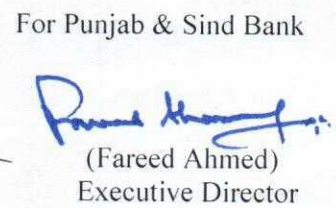 For Punjab & Sind Bank
(Fareed Ahmed)
Executive Director